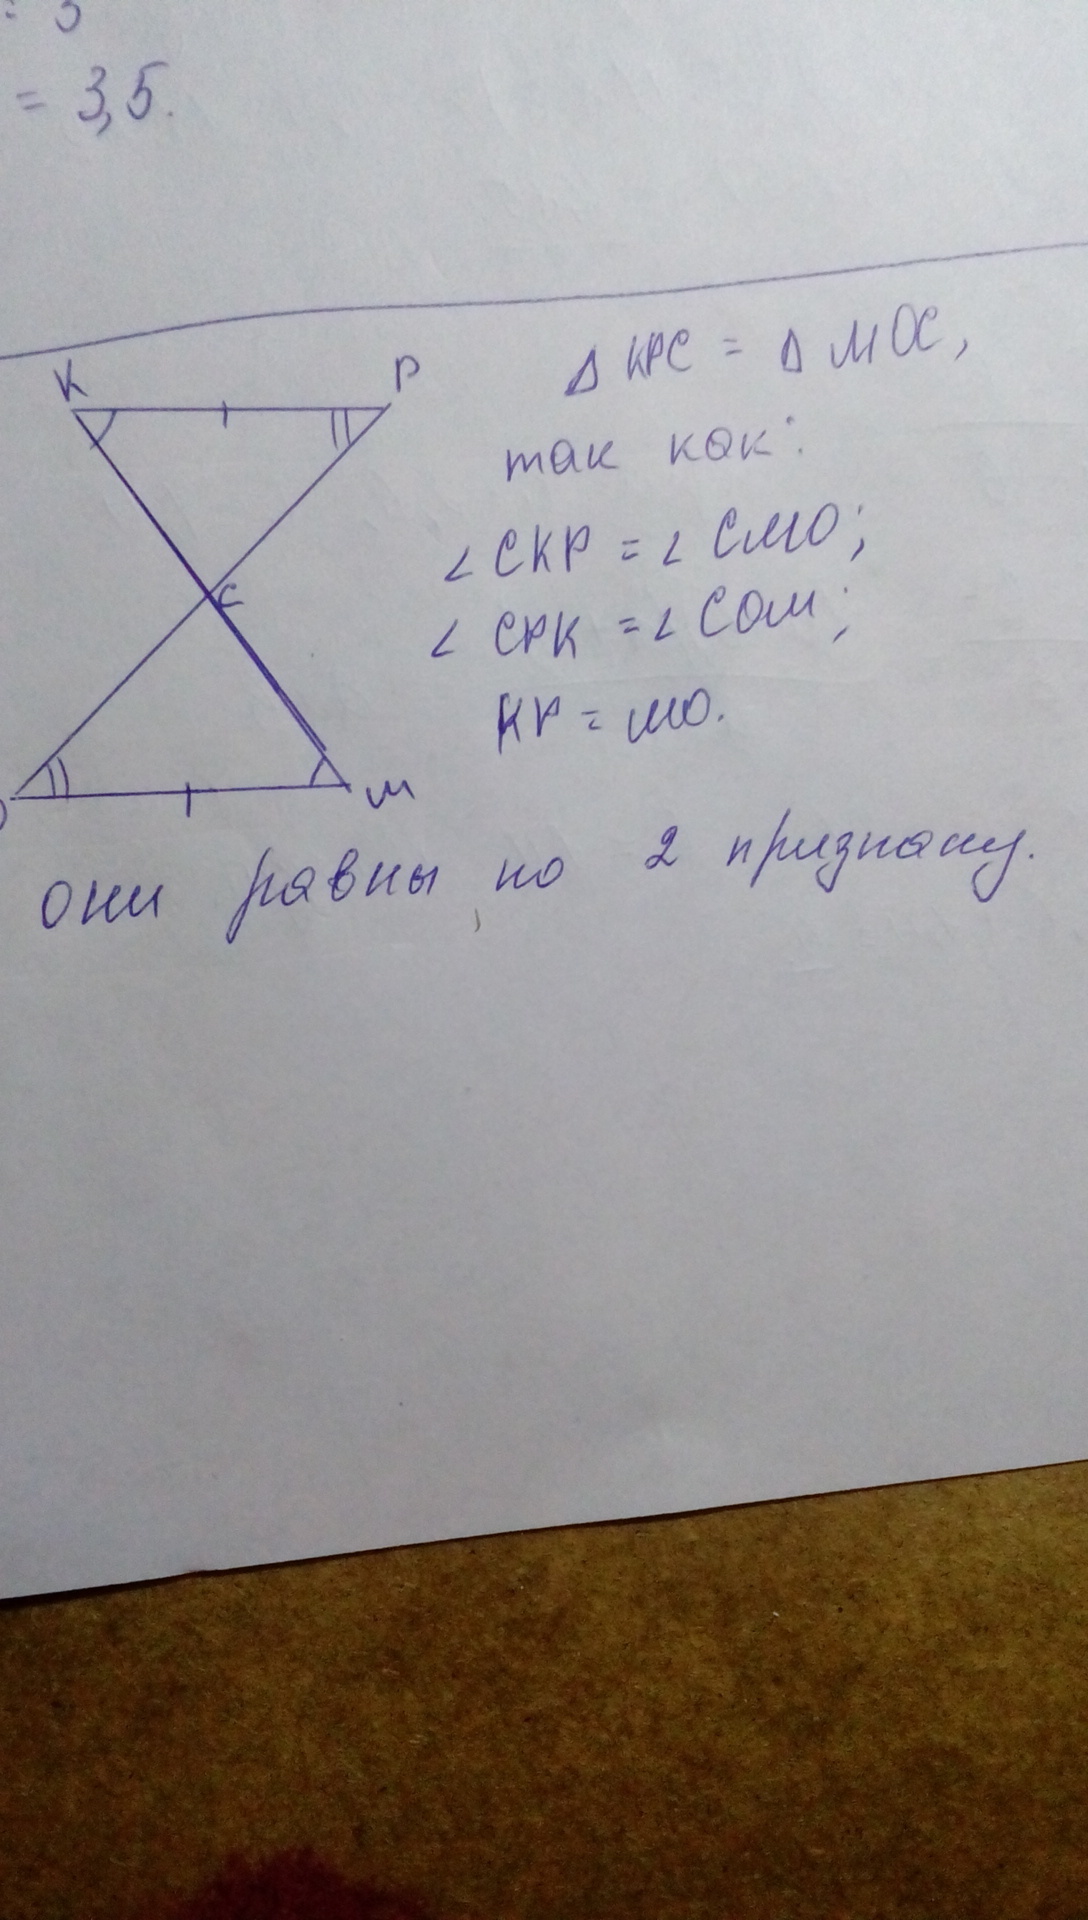 = 3,5.
K
P
C
M
Δ KPC = Δ MOC,
так как:
∠ CKP = ∠ CMO;
∠ CPK = ∠ COM;
KP = MO.
они равны по 2 признаку.